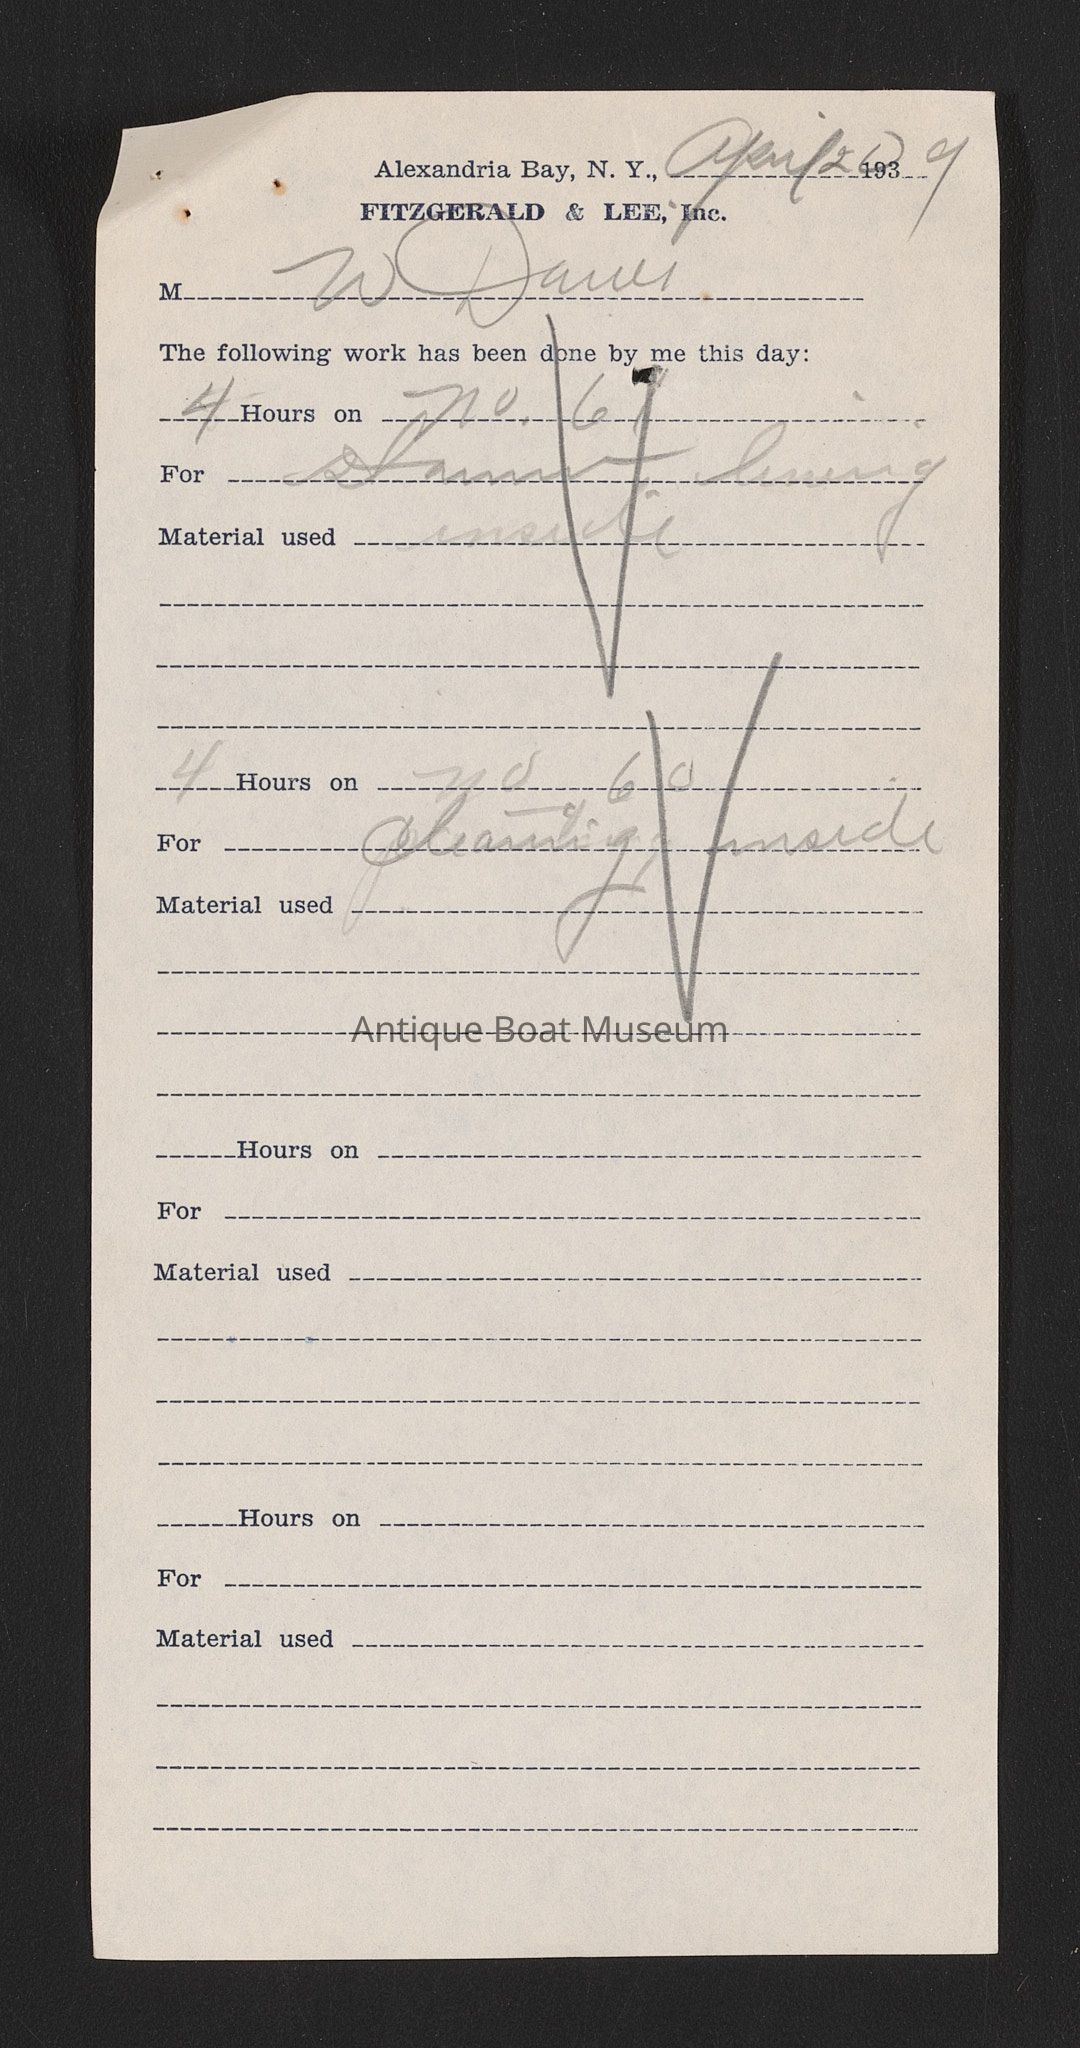 Alexandria Bay, N. Y., April 20 1939
FITZGERALD & LEE, Inc.
M W Davis
The following work has been done by me this day:
4 Hours on No. 61
For
Material used inside
4 Hours on No 60
For Cleaning inside
Material used
Antique Boat Museum
Hours on
For
Material used
Hours on
For
Material used